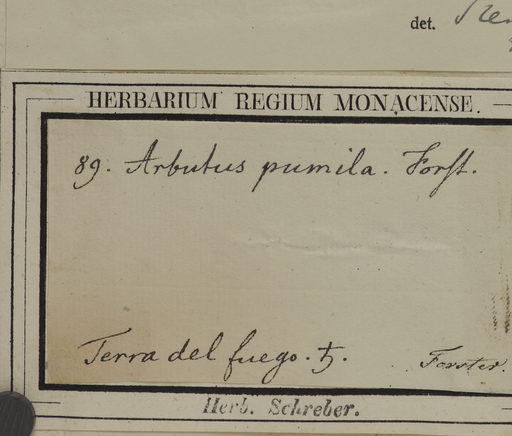 det.
HERBARIUM REGIUM MONACENSE.
89. Arbutus pumila. Forst.
Terra del fuego. ♄.
Forster.
Herb. Schreber.